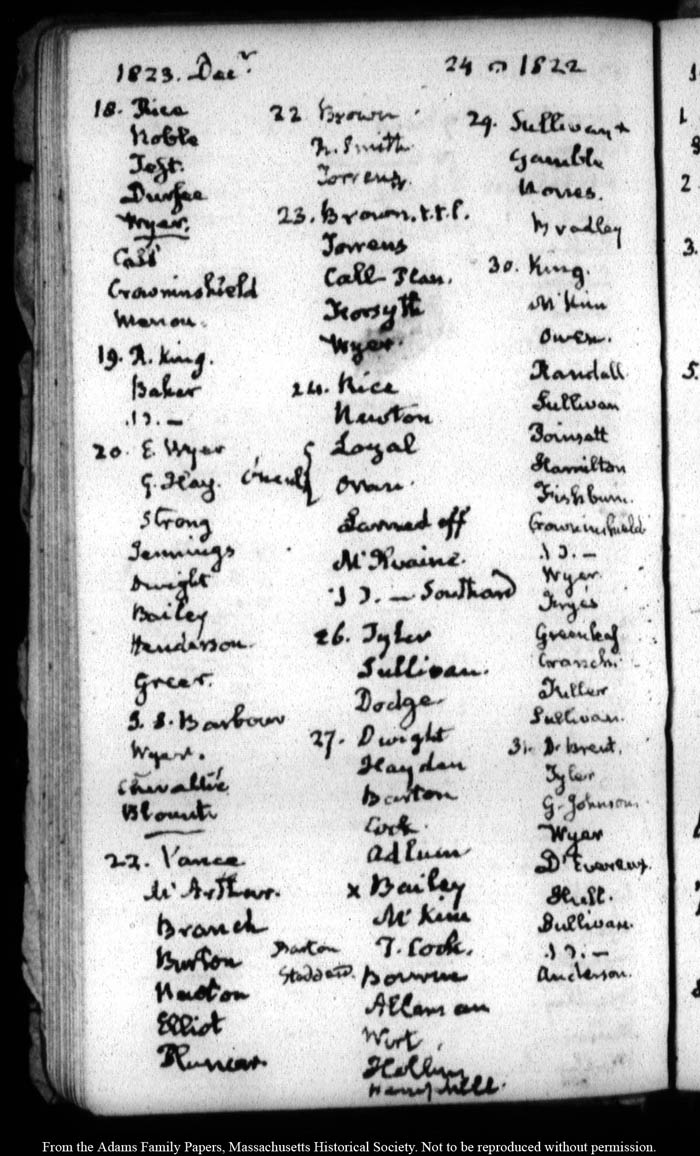 1823. Decr.
18. Rice
Noble
Test.
Durfee
Wyer.
Call
Crowninshield
19. R. King.
Baker
.1).—
20. E. Wyer
G. Hay.
Strong
Jennings
Dwight
Bailey
Henderson.
Greer.
J. S. Barbour
Wyer.
Chevallié
Blount
22. Vance
McArthur.
Branch
Burton
Newton
Elliot
24 1822
22 Brown
Smith
Torrens.
23. Brown. t.t.l.
Torrens
Call Plan.
Forsyth
Wyer.
24. Rice
Newton
Loyal
Larned off
McIlvaine.
.1).— Southard
26. Tyler
Sullivan.
Dodge
27. Dwight
Hayden
Barton
Cook.
Adlum
x Bailey
McKim
Barton T. Cook.
Wirt,
Hemphill.
29. Sullivan x
Gamble
Bradley
30. King.
McKim
Owen.
Randall
Sullivan
Poinsett
Hamilton
Crowninshield
.1).—
Wyer
Fryes
Greenleaf
Cranch.
Fuller
Sullivan.
31. Dr Brent.
Tyler
G. Johnson.
Wyer
Dr Everett.
Hull.
Sullivan.
.1).—
Anderson.
From the Adams Family Papers, Massachusetts Historical Society. Not to be reproduced without permission.